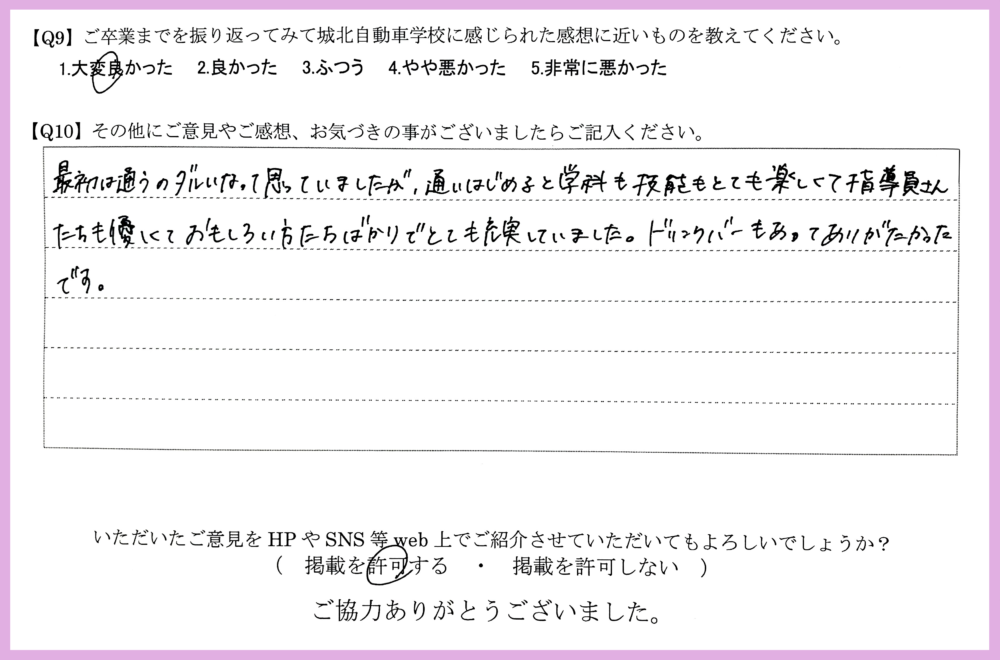 【Q9】ご卒業までを振り返ってみて城北自動車学校に感じられた感想に近いものを教えてください。
1.大変良かった 2.良かった 3.ふつう 4.やや悪かった 5.非常に悪かった
【Q10】その他にご意見やご感想、お気づきの事がございましたらご記入ください。
最初は通うのダルいなって思っていましたが、通いはじめると学科も技能もとても楽しくて指導員さん
たちも優しくておもしろい方たちばかりでとても充実していました。ドリンクバーもあってありがたかった
です。
いただいたご意見を HP や SNS 等 web 上でご紹介させていただいてもよろしいでしょうか？
( 掲載を許可する ・ 掲載を許可しない )
ご協力ありがとうございました。